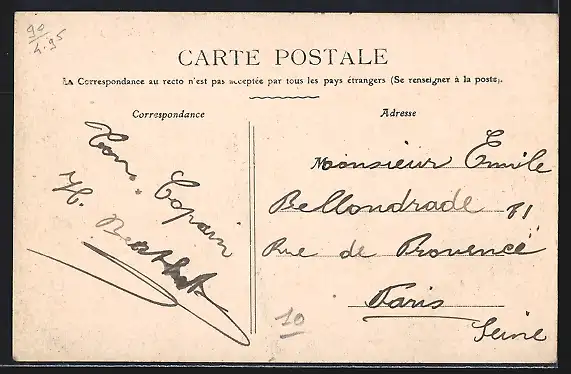 90
4.95
CARTE POSTALE
La Correspondance au recto n'est pas acceptée par tous les pays étrangers (Se renseigner à la poste).
Correspondance
Ton Copain
H. Berthelot
Adresse
Monsieur Emile
Bellondrade 71
Rue de Provence
Paris
Seine
10